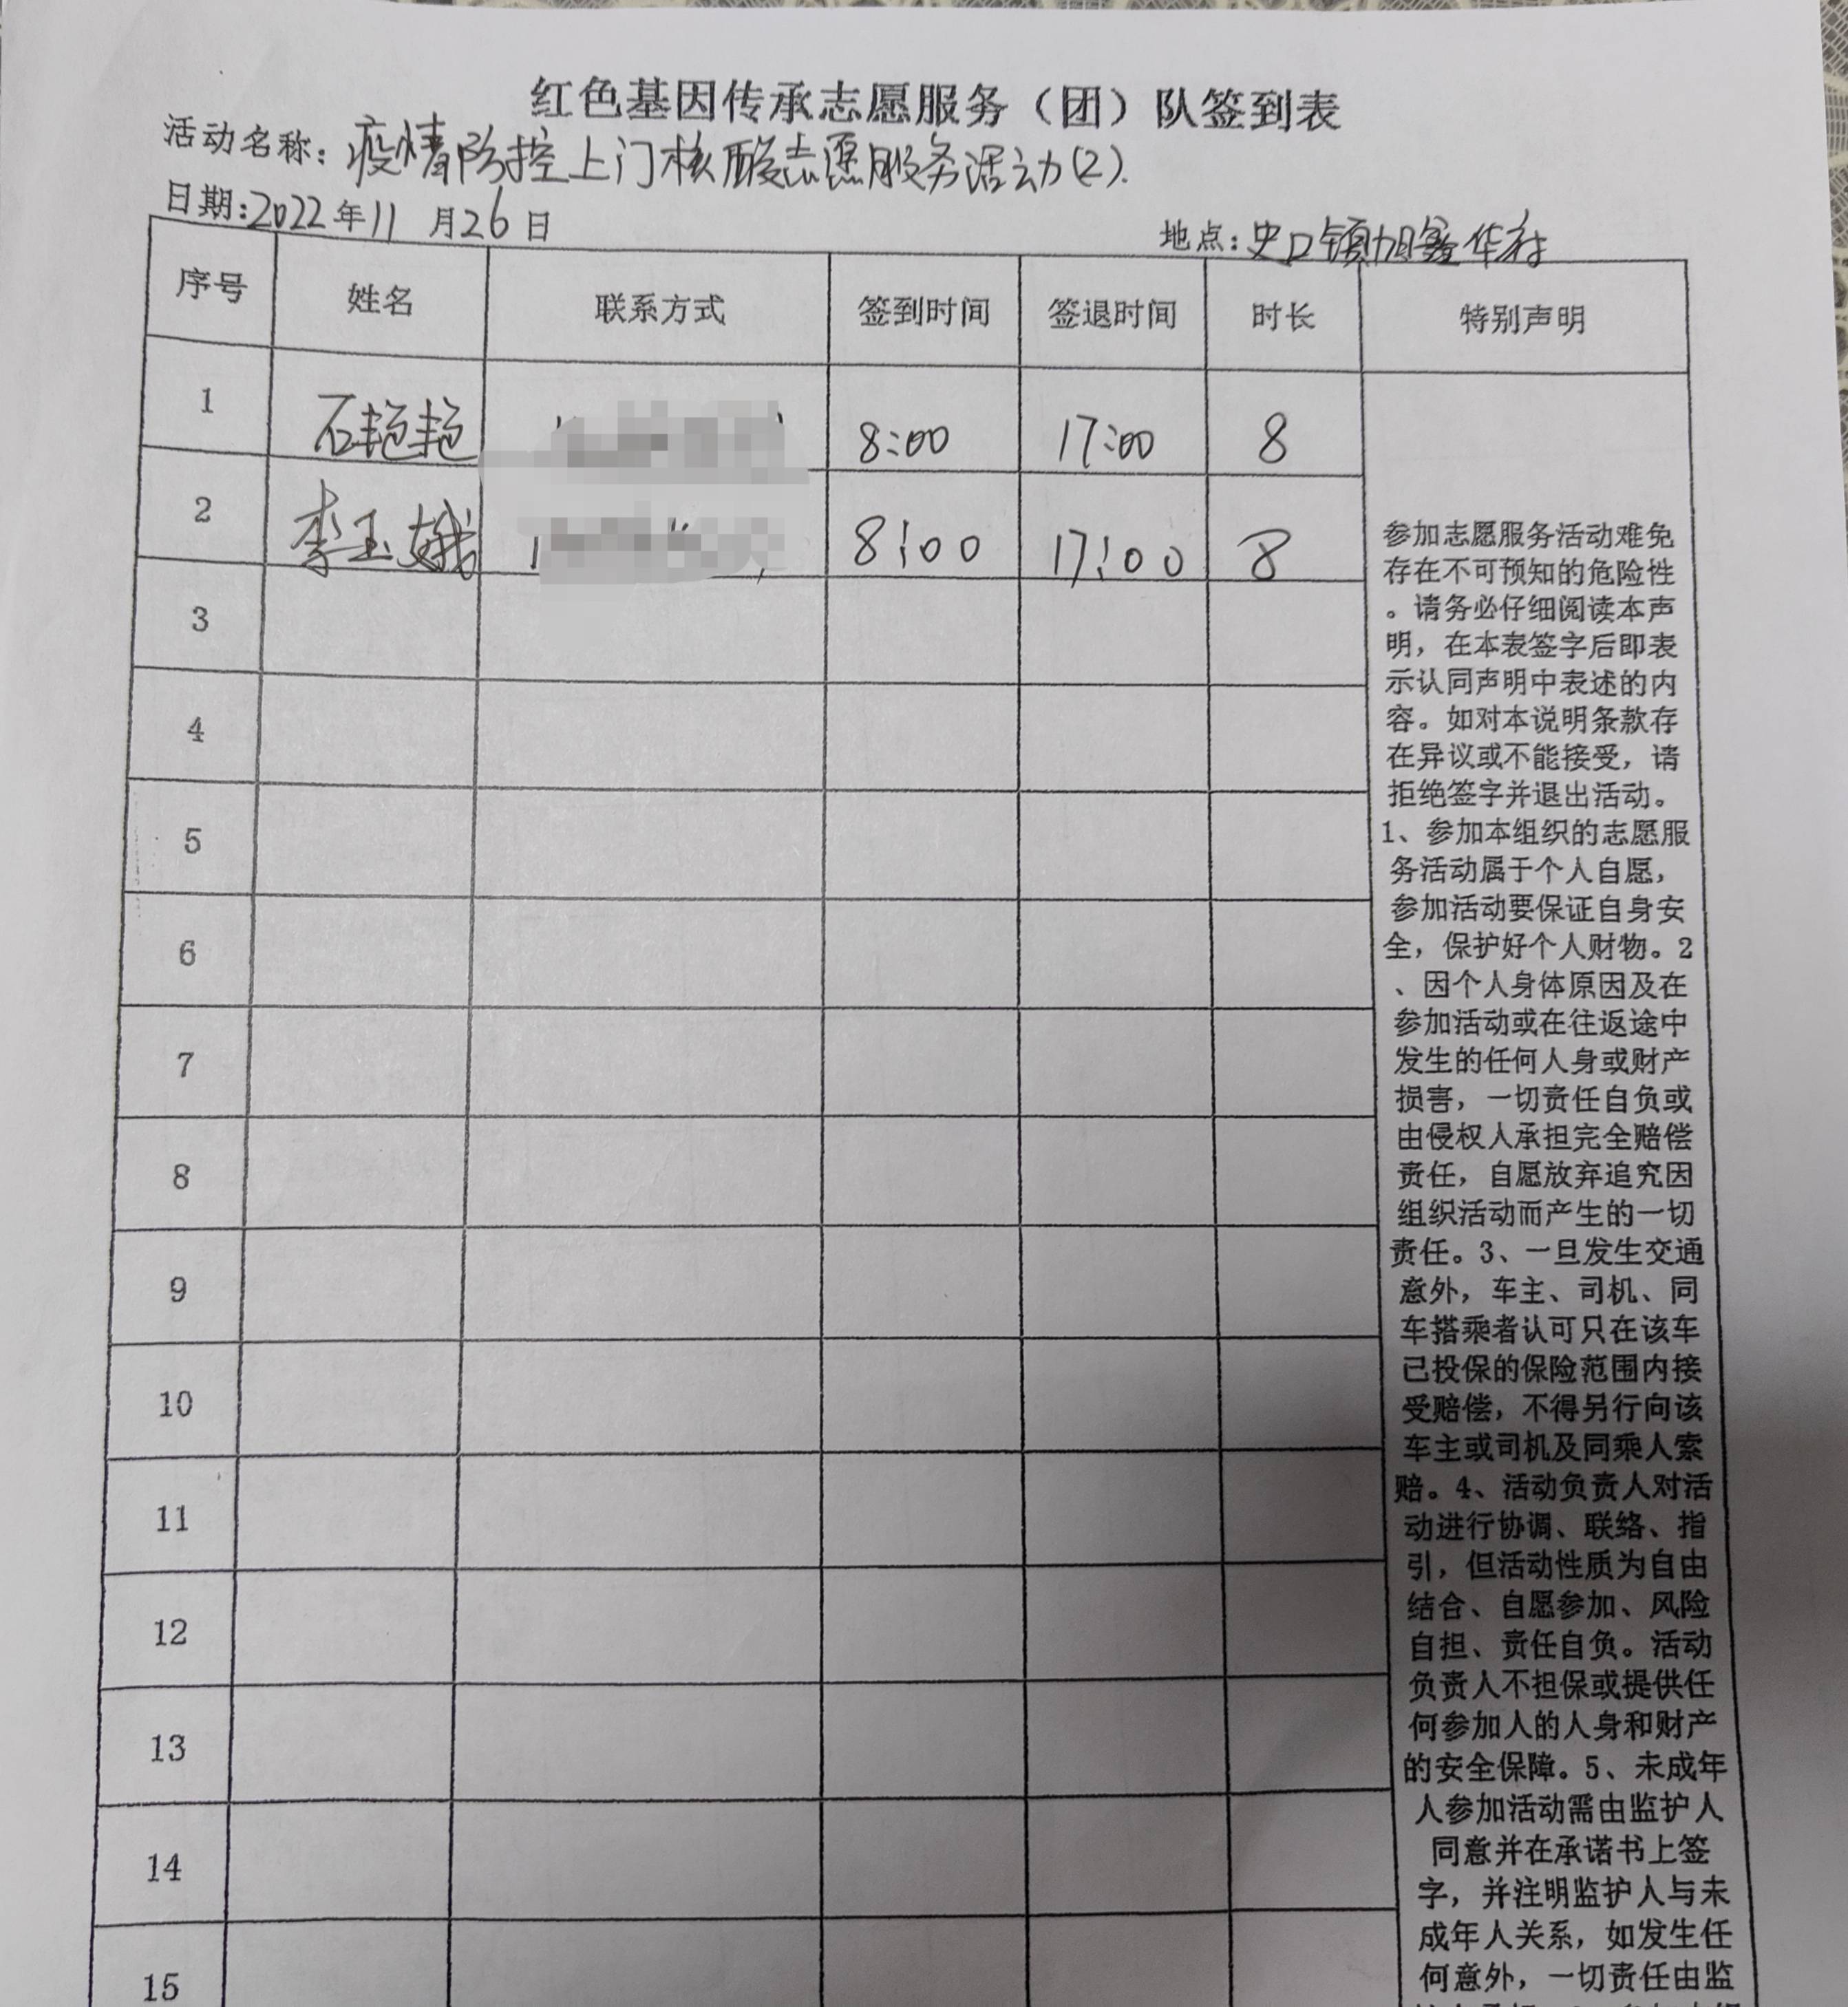 红色基因传承志愿服务（团）队签到表
活动名称：疫情防控上门核酸志愿服务活动(2).
日期:2022年11月26日
地点:史口镇旭鑫华社
序号 姓名 联系方式 签到时间 签退时间 时长 特别声明
1 石艳艳 8:00 17:00 8
2 李玉娥 8:00 17:00 8
3
4
5
6
7
8
9
10
11
12
13
14
15
参加志愿服务活动难免
存在不可预知的危险性
。请务必仔细阅读本声
明，在本表签字后即表
示认同声明中表述的内
容。如对本说明条款存
在异议或不能接受，请
拒绝签字并退出活动。
1、参加本组织的志愿服
务活动属于个人自愿，
参加活动要保证自身安
全，保护好个人财物。2
、因个人身体原因及在
参加活动或在往返途中
发生的任何人身或财产
损害，一切责任自负或
由侵权人承担完全赔偿
责任，自愿放弃追究因
组织活动而产生的一切
责任。3、一旦发生交通
意外，车主、司机、同
车搭乘者认可只在该车
已投保的保险范围内接
受赔偿，不得另行向该
车主或司机及同乘人索
赔。4、活动负责人对活
动进行协调、联络、指
引，但活动性质为自由
结合、自愿参加、风险
自担、责任自负。活动
负责人不担保或提供任
何参加人的人身和财产
的安全保障。5、未成年
人参加活动需由监护人
同意并在承诺书上签
字，并注明监护人与未
成年人关系，如发生任
何意外，一切责任由监